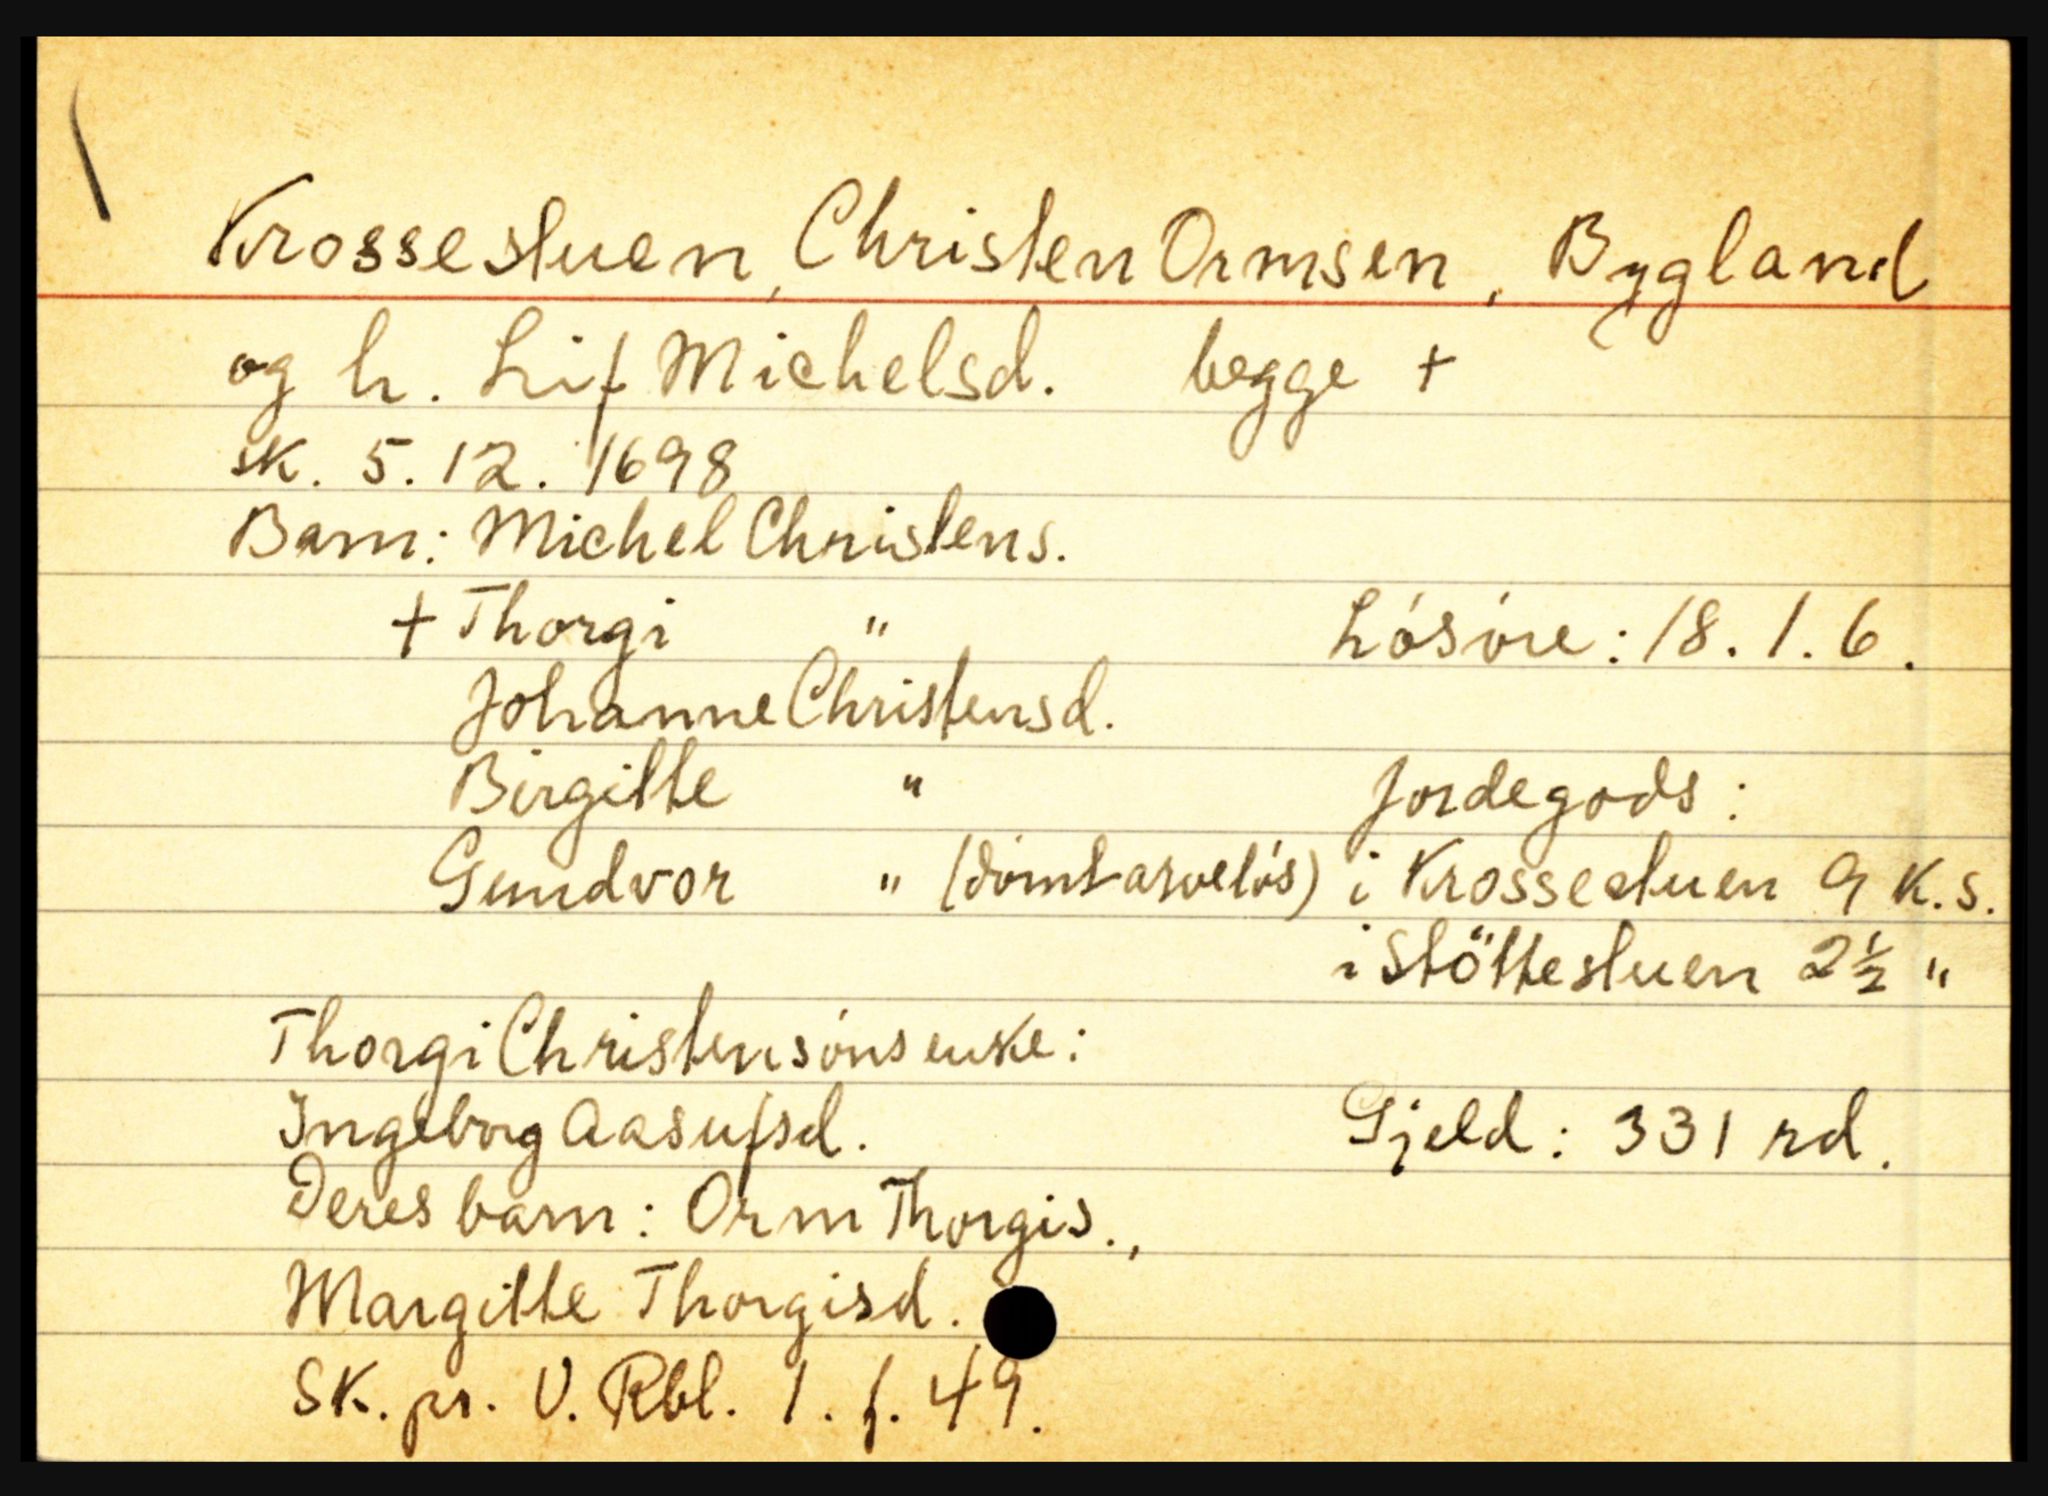 Krossestuen, Christen Ormsen, Bygland
og h. Lif Michelsd. begge +
sk. 5. 12. 1698
Barn: Michel Christens.
+ Thorgi " Lósóre: 18. 1. 6.
Johanne Christensd.
Birgitte " Jordegods:
Gundvor " (dómt arvelós) i Krossestuen 9 K.s.
i Stöttestuen 2½ "
Thorgi Christensóns enke:
Ingeborg Aasufsd. Gjeld: 331 rd.
Deres barn: Orm Thorgis.,
Margitte Thorgisd.
SK. pr. V. Rbl. 1. f. 49.